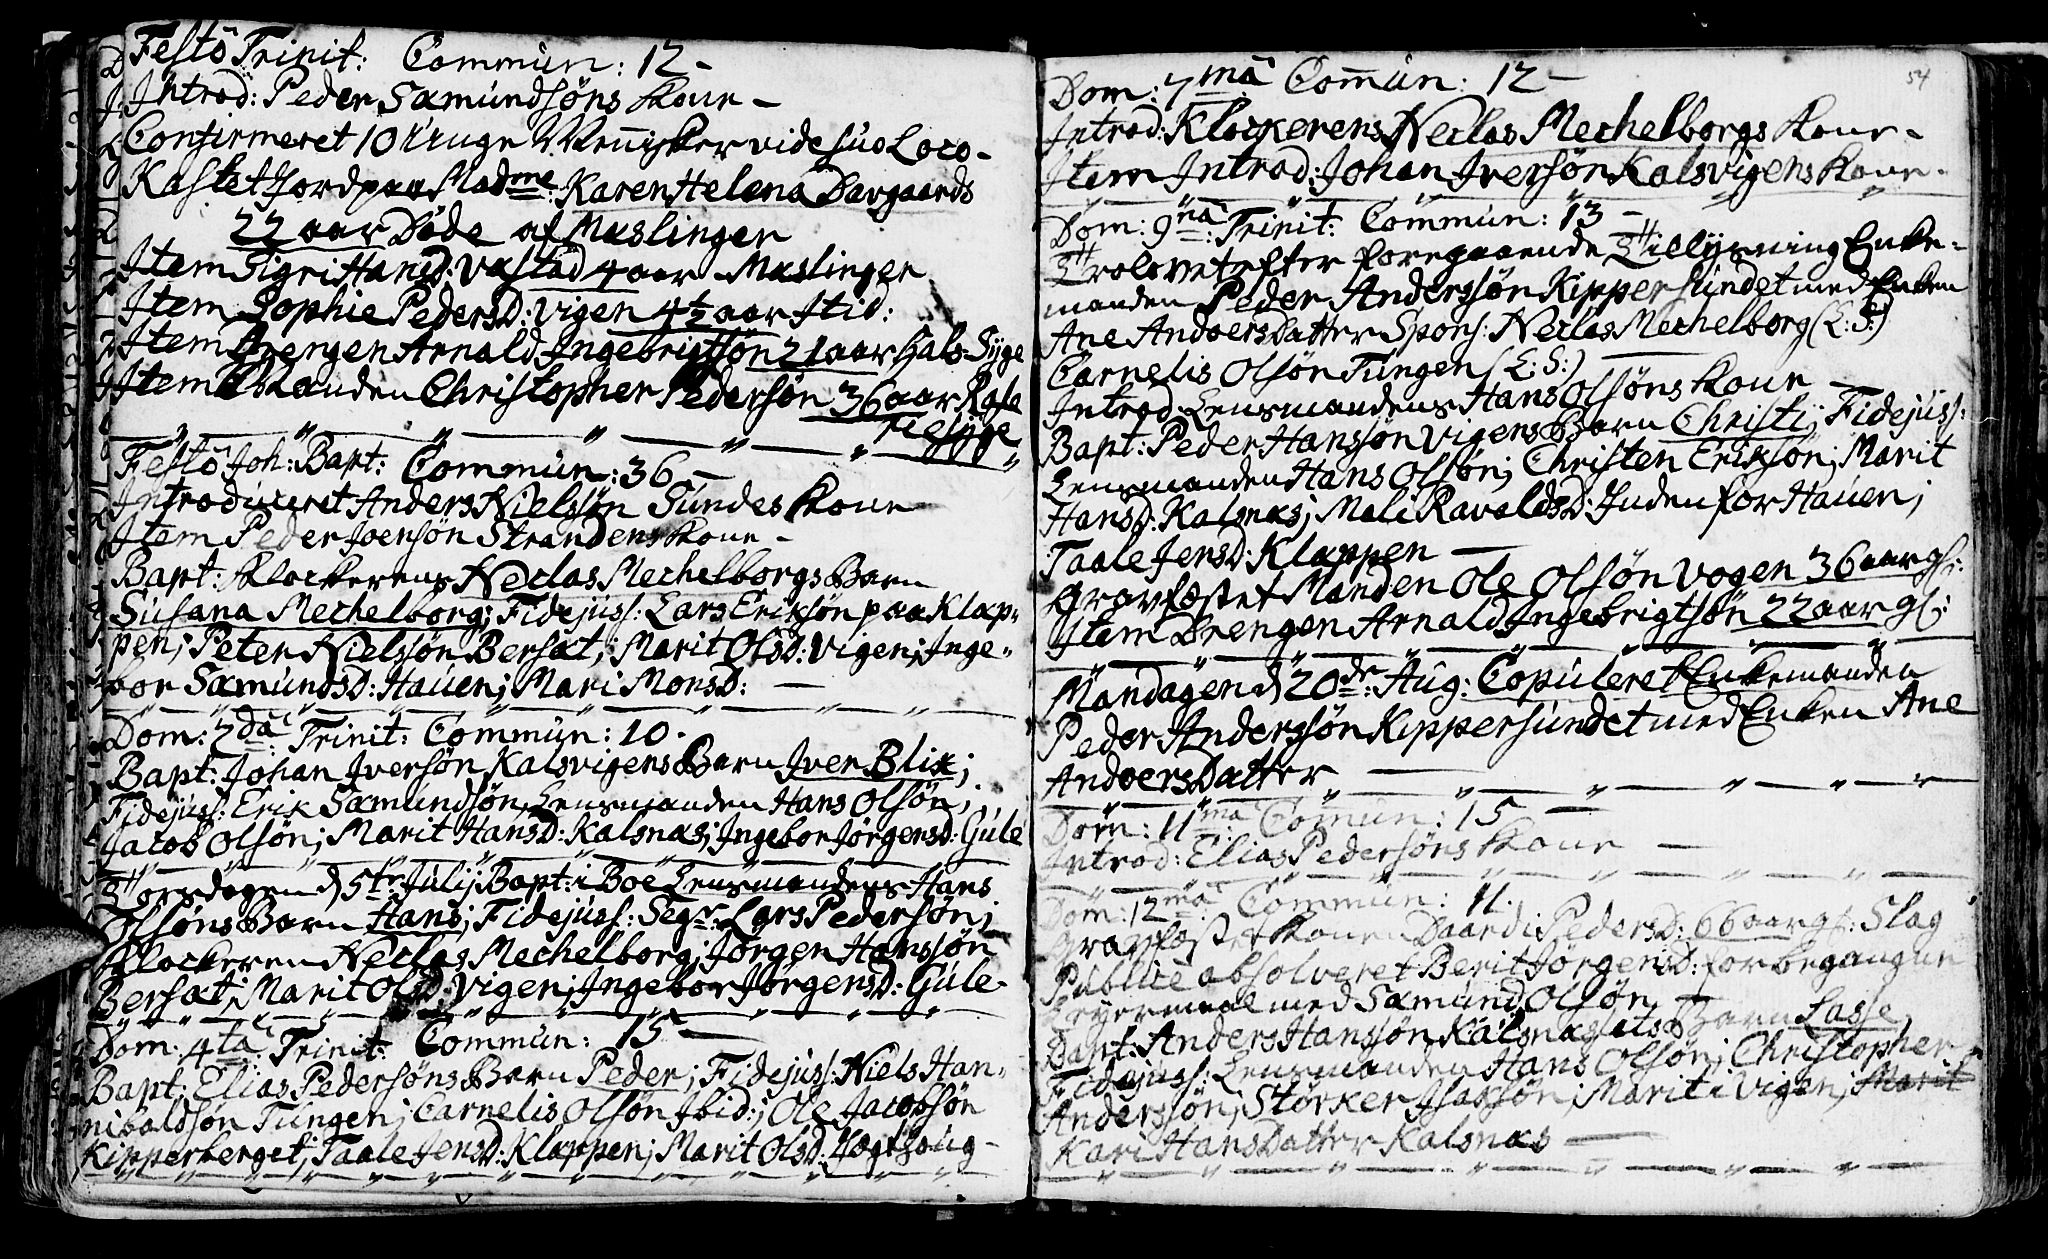 Festo Trinit: Commun: 12 -
Introd: Peder Sæmundsöns Kone -
Confirmeret 10 Unge Menisker vide suo Loco -
Kastet Jord paa Madme: Karen Helena Davgaards
22 aar Döde af Mæslinger
Item Sigri Hansd: Vastad 4 aar Mæslinger
Item Sophie Pedersd: Vigen 4½ aar Itid:
Item Drengen Arnald Ingebrigtsön 21 aar Hals-Syge
Item Manden Christopher Pedersön 36 aar
Festo Joh: Bapt: Commun: 36 -
Introduceret Anders Nielsön Sundes Kone
Item Peder Joensön Strandens Kone -
Bapt: Klockerens Neclas Mechelborgs Barn
Susana Mechelborg; Fidejuss: Lars Eriksön paa Klap-
pen; Peter Nielssön Bersæt; Marit Olsd: Vigen; Inge-
bor Sæmundsd: Hauen; Mari Monsd: —
Dom: 2da Trinit: Commun: 10.
Bapt: Johan Iversön Kalsvigens Barn Iver Blix;
Fidejuss: Erik Sæmundsön, Lensmanden Hans Olsön;
Jacob Olsön; Marit Hansd: Kalsnæs; Ingebor Jörgensd: Gule
Torsdagen d 5te Julij Bapt: i Boe Lensmandens Hans
Olsöns Barn Hans; Fidejuss: Segr: Lars Pedersön;
Klockeren Neclas Mechelborg; Jörgen Hanssön
Bersæt; Marit Olsd: Vigen; Ingebor Jörgensd: Gule -
Dom: 4ta: Trinit: Commun: 15 —
Bapt: Elias Pedersöns Barn Peder; Fidejuss: Niels Han-
nibaldsön Tungen; Carnelis Olsön Ibid:; Ole Jacobsön
Kipperberget; Taale Jensd: Klappen; Marit Olsd: Hægthoug -
54
Dom: 7ma Comun: 12 —
Introd: Klockerens Neclas Mechelborgs Kone -
Item Introd: Johan Iversön Kalsvigens Kone -
Dom: 9na: Trinit: Commun: 13 -
Trolovet efter foregaaende Tillysning Enke-
manden Peder Anderssön Kippersundet med Enken
Ane AndoersDatter Spons: Neclas Mechelborg (L:S:)
Carnelis Olsön Tungen (L:S:)
Introd: Lensmandens Hans Olsöns Kone —
Bapt: Peder Hanssön Vigens Barn Christi; Fidejuss:
Lensmanden Hans Olsön; Christen Eriksön; Marit
Hansd: Kalsnæs; Mali Ravaldsd: Inden for Hauen;
Taale Jensd: Klappen —
Gravfæstet Manden Ole Olsön Vogen 36 aar gl:
Item Drengen Arnald Ingebrigtsön 22 aar gl:
Mandagen d 20de: Aug: Copuleret Enkemanden
Peder Anderssön Kippersundet med Enken Ane
AndoersDatter —
Dom: 11ma Comun: 15 —
Introd: Elias Pedersöns Kone —
Dom: 12ma: Commun: 11.
Gravfæstet Konen Daardi Pedersd: 66 aar gl: Slag
Publice absolveret Berit Jörgensd: for begangen
Leyermaal med Sæmund Olsön —
Bapt: Anders Hanssön Kalsnæslets Barn Lasse
Fidejuss: Lensmanden Hans Olsön; Christopher
Anderssön; Störker Isaksön; Marit i Vigen; Marit
Kari HansDatter Kalsnæs —